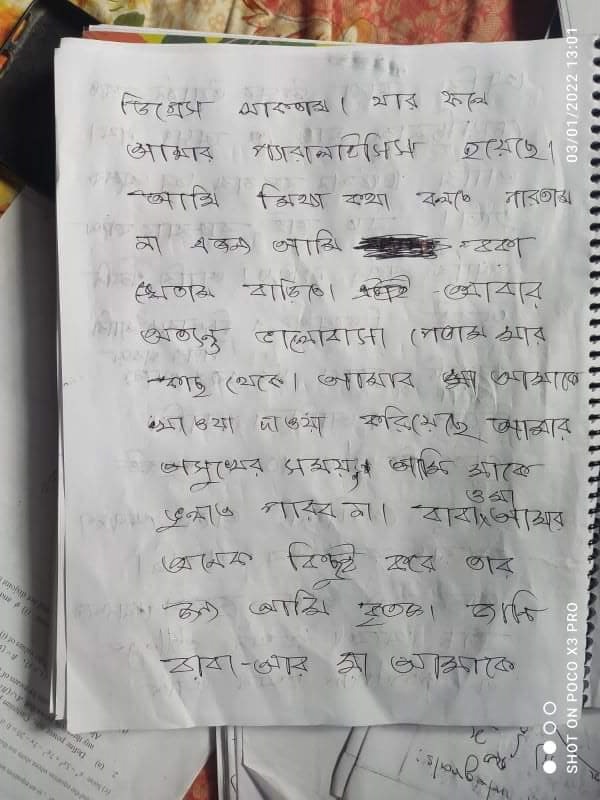 ডিপ্রেস থাকতাম। যার ফলে
আমার প্যারালাইসিস হয়েছে।
আমি মিথ্যা কথা বলতে পারতাম
না এজন্য আমি বকা
খেতাম বাড়িতে। আবার
অত্যন্ত ভালোবাসা পেতাম মার
কাছ থেকে। আমার মা আমাকে
খাওয়া দাওয়া করিয়েছে আমার
অসুখের সময়, আমি মাকে
ভুলতে পারব না। বাবা ও মা আমার
অনেক কিছুই করে তার
জন্য আমি কৃতজ্ঞ। জানি
বাবা আর মা আমাকে
03/01/2022 13:01
SHOT ON POCO X3 PRO